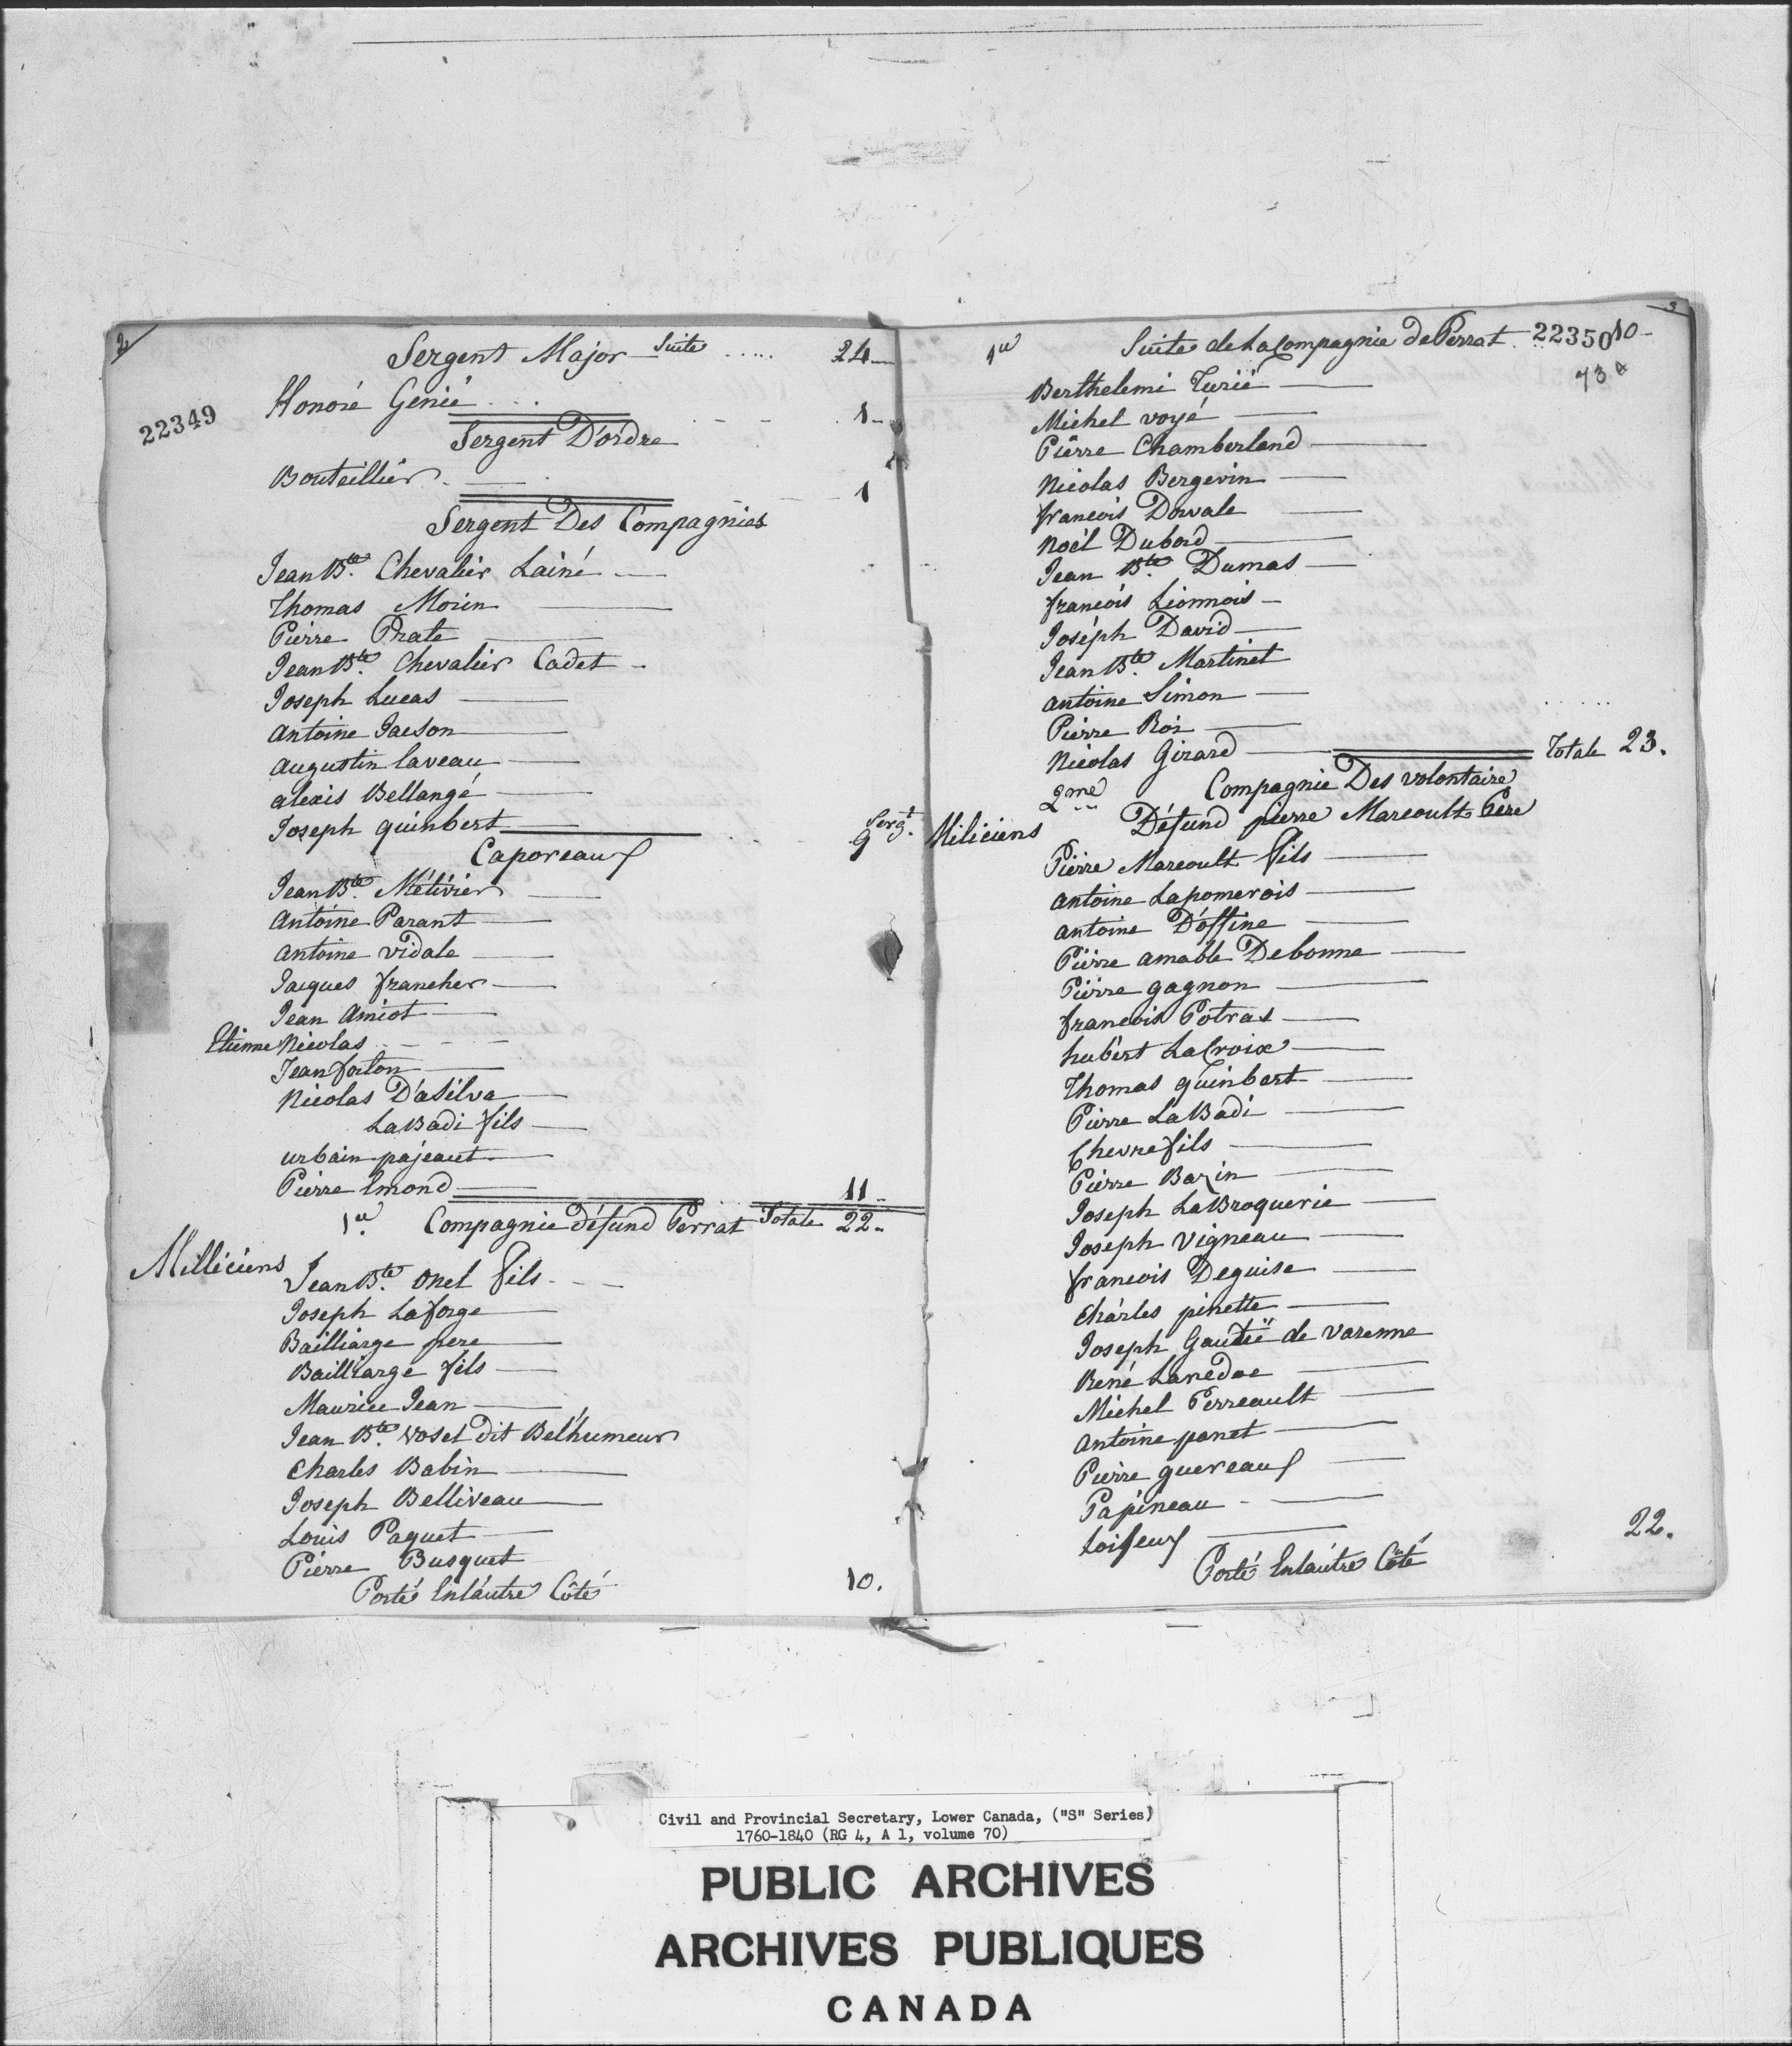 2
Sergent Major Suite ...... 24
22349
Honoré Génié . . . 1
Sergent D'ordre
Bouteillier 1
Sergent Des Compagnies
Jean Bte. Chevalier Lainé
Thomas Morin
Pierre Prate
Jean Bte. Chevalier Cadet
Joseph Lucas
Antoine Jacson
Augustin Laveau
alexis Bellangé
Joseph guinbert Sergt. 9
Caporeaux
Jean Bte. Métivier
Antoine Parant
antoine Vidale
Jacques francher
Jean Amiot
Etienne Nicolas
Jean forton
Nicolas D'aSilva
LaBadi fils
urbain pajeaut
Pierre Emond 11
1re. Compagnie défund Perrat Totale 22
Milliciens
Jean Bte. Onel fils
Joseph Laforge
Bailliarge pere
Bailliarge fils
Maurice Jean
Jean Bte. Vosel dit Bel'humeur
Charles Babin
Joseph Belliveau
Louis Paquet
Pierre Busquet
Porté Enlautre Côté 10.
3
1re Suite de La Compagnie de Perrat 22350 10
73
Berthelemi Turié
Michel voyé
Pierre Chamberland
Nicolas Bergevin
francois Dowale
Noël Dubord
Jean Bte. Dumas
francois Lionnois
Joseph David
Jean Bte. Martinet
antoine Simon
Pierre Roi
Nicolas Girard Totale 23.
2me Compagnie Des volontaire
Miliciens Défund pierre Marcoult Père
Pierre Marcoult fils
antoine Lapomerois
antoine D'offine
Pierre amable Debonne
Pierre gagnon
francois Potras
hubert LaCroix
Thomas guinbert
Pierre LaBadi
Chevrefils
Pierre Bazin
Joseph LaBroquerie
Joseph Vigneau
francois Deguise
Charles pinette
Joseph Gautié de Varenne
René Lanedoc
Michel Perreault
Antoine panet
Pierre guereaux
Papineau
Loiseux 22.
Porté Enlautre Côté
Civil and Provincial Secretary, Lower Canada, ("S" Series)
1760-1840 (RG 4, A 1, volume 70)
PUBLIC ARCHIVES
ARCHIVES PUBLIQUES
CANADA